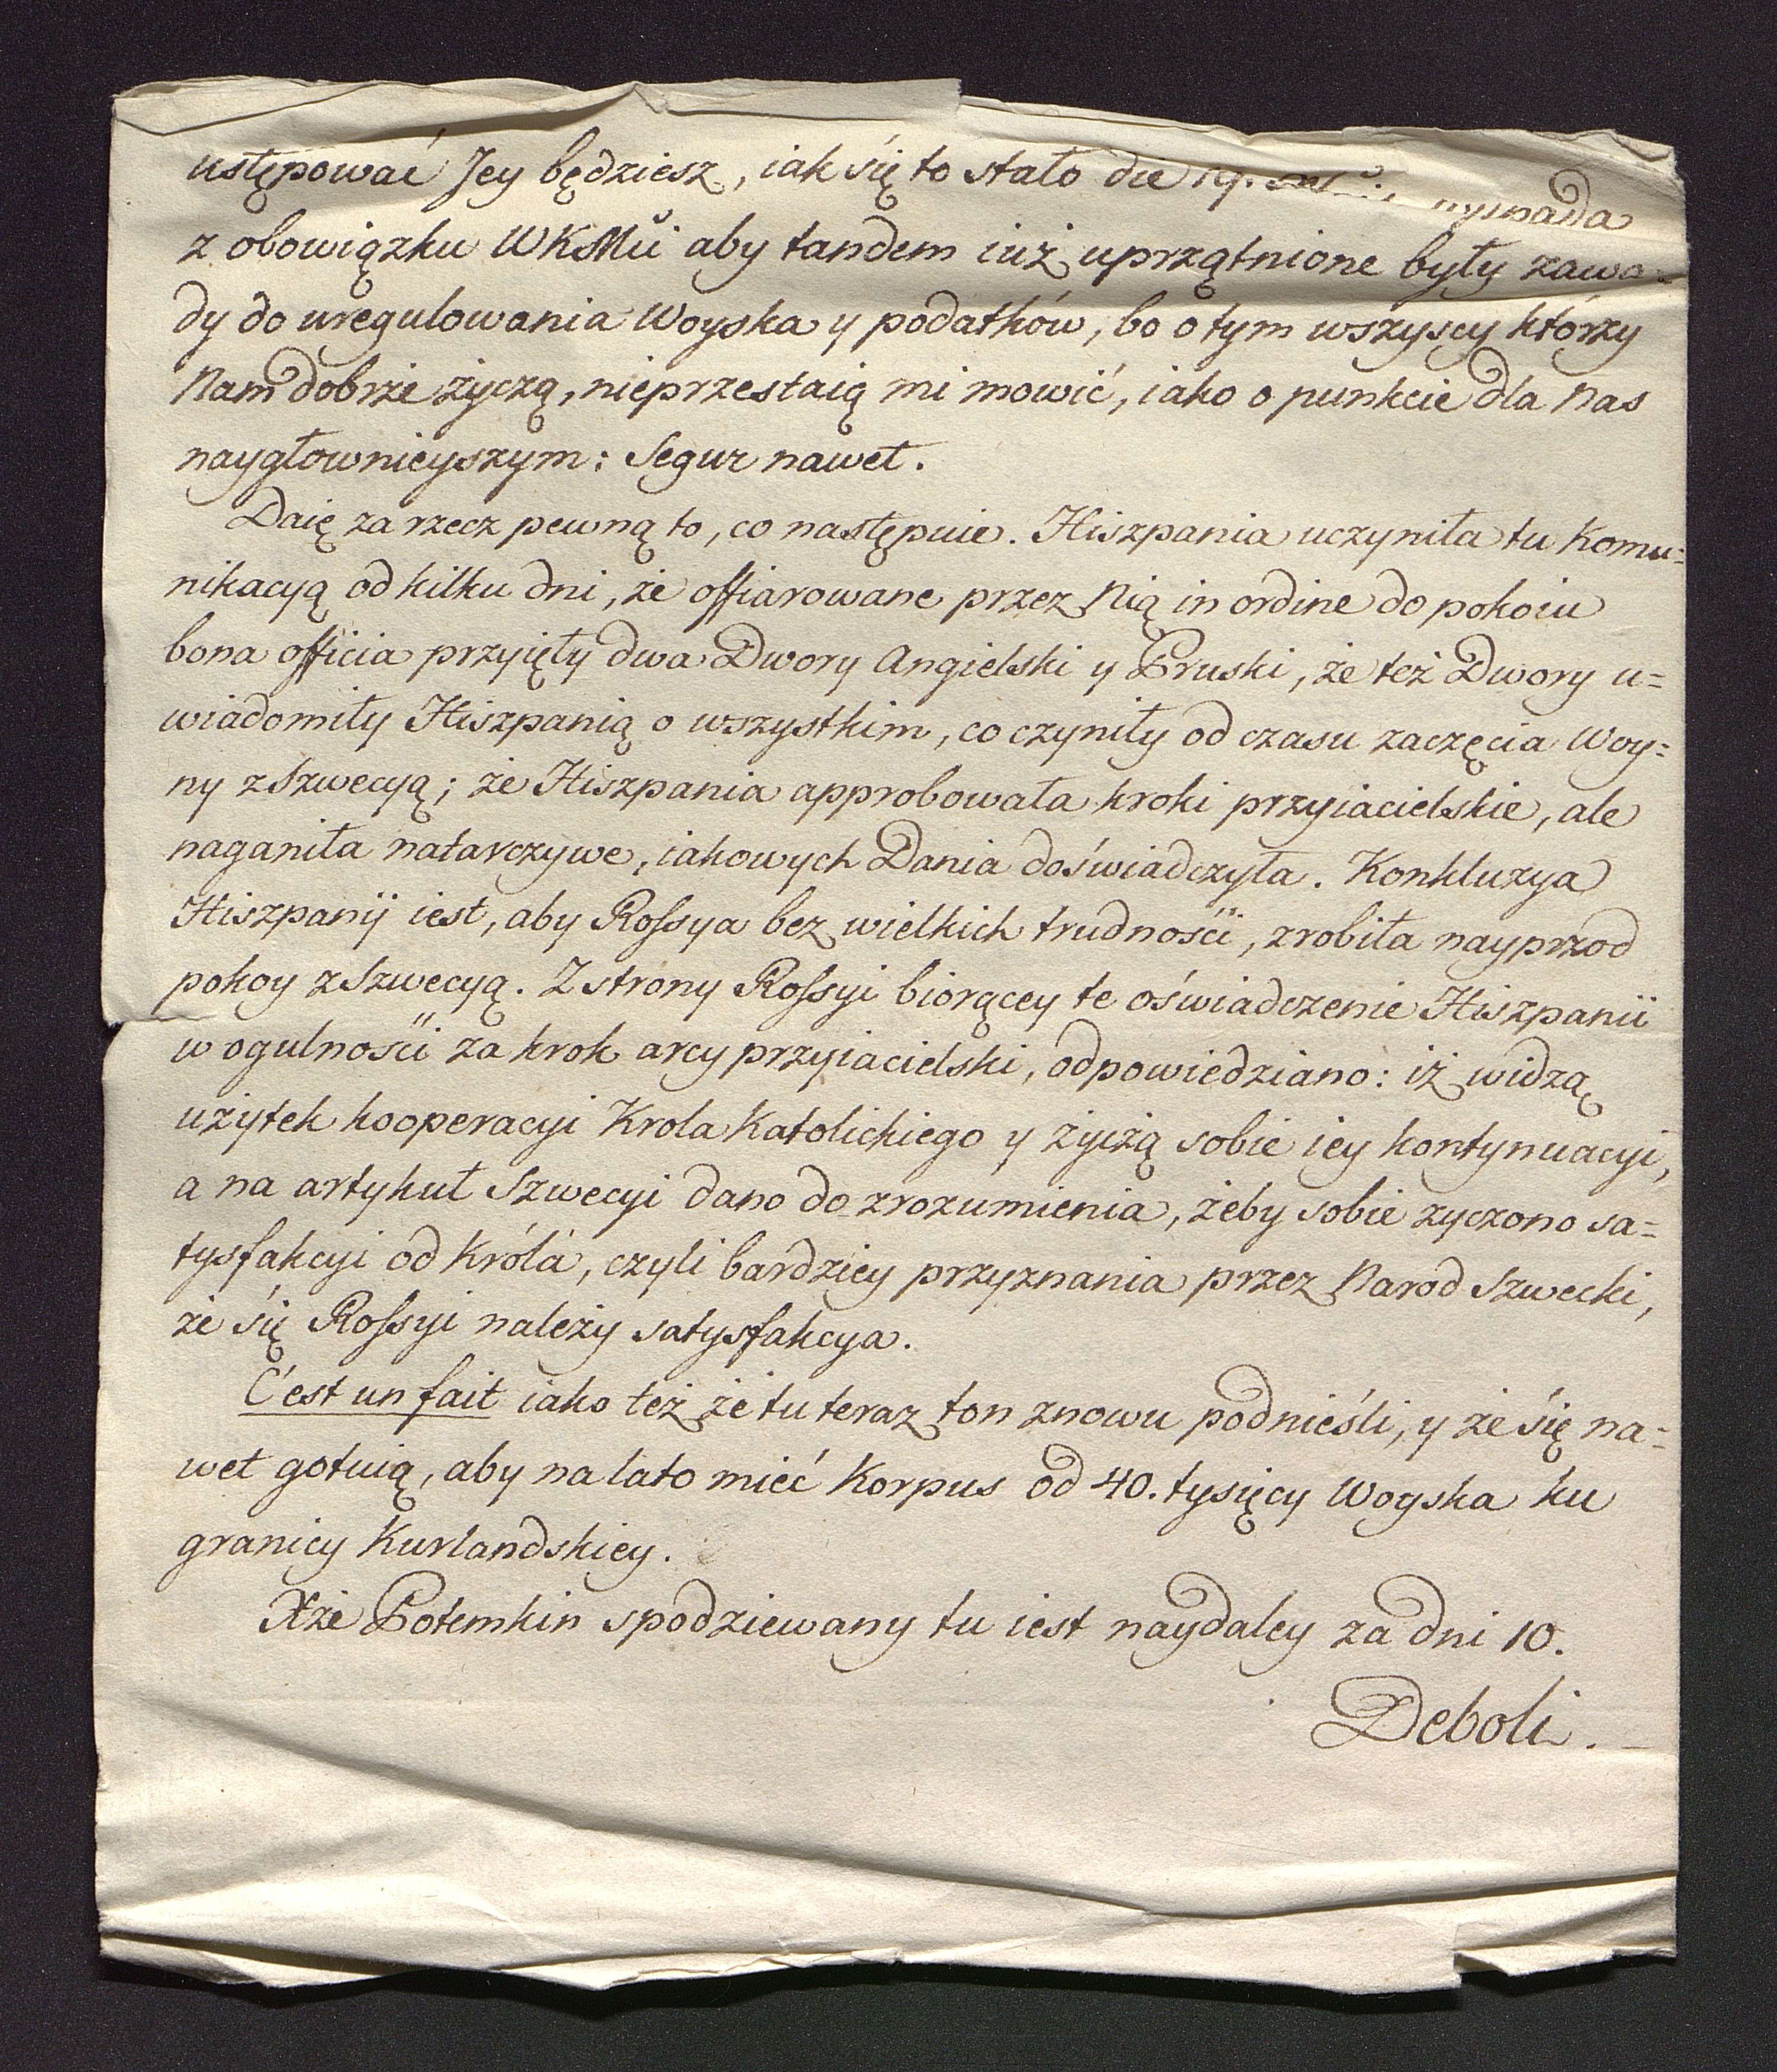 ustępować Jey będziesz, iak się to stało die 19.
z obowiązku WKMci aby tandem iuż uprzątnione były zawa=
dy do uregulowania Woyska y podatków, bo o tym wszyscy którzy
Nam dobrże życzą, nieprzestaią mi mowić, iako o punkcie dla Nas
naygłownieyszym: Segur nawet.
Daię za rzecz pewną to, co następuie. Hiszpania uczyniła tu Komu=
nikacyą od kilku dni, że offiarowane przez Nią in ordine do pokoiu
bona officia przyięły dwa Dwory Angielski y Pruski, że też Dwory u=
wiadomiły Hiszpanią o wszystkim, co czyniły od czasu zaczęcia Woy=
ny z Szwecyą; że Hiszpania approbowała kroki przyiacielskie, ale
naganiła natarczywe, iakowych Dania doświadczyła. Konkluzya
Hiszpanij iest, aby Rossya bez wielkich trudności, zrobiła nayprzod
pokoy z Szwecyą. Z strony Rossyi biorącey te oświadczenie Hiszpanii
w ogulności za krok arcyprzyiacielski, odpowiedziano: iż widzą
użytek kooperacyi Krola Katolickiego y życzą sobie iey kontynuacyi,
a na artykuł Szwecyi dano do zrozumienia, żeby sobie zyczono sa=
tysfakcyi od Króla, czyli bardziey przyznania przez Narod Szwecki,
że się Rossyi należy satysfakcya.
C'est un fait iako też że tu teraz ton znowu podnieśli, y że się na=
wet gotuią, aby na lato mieć Korpus od 40. tysięcy Woyska ku
granicy Kurlandskiey.
Xże Potemkin spodziewany tu iest naydaley za dni 10.
Deboli.